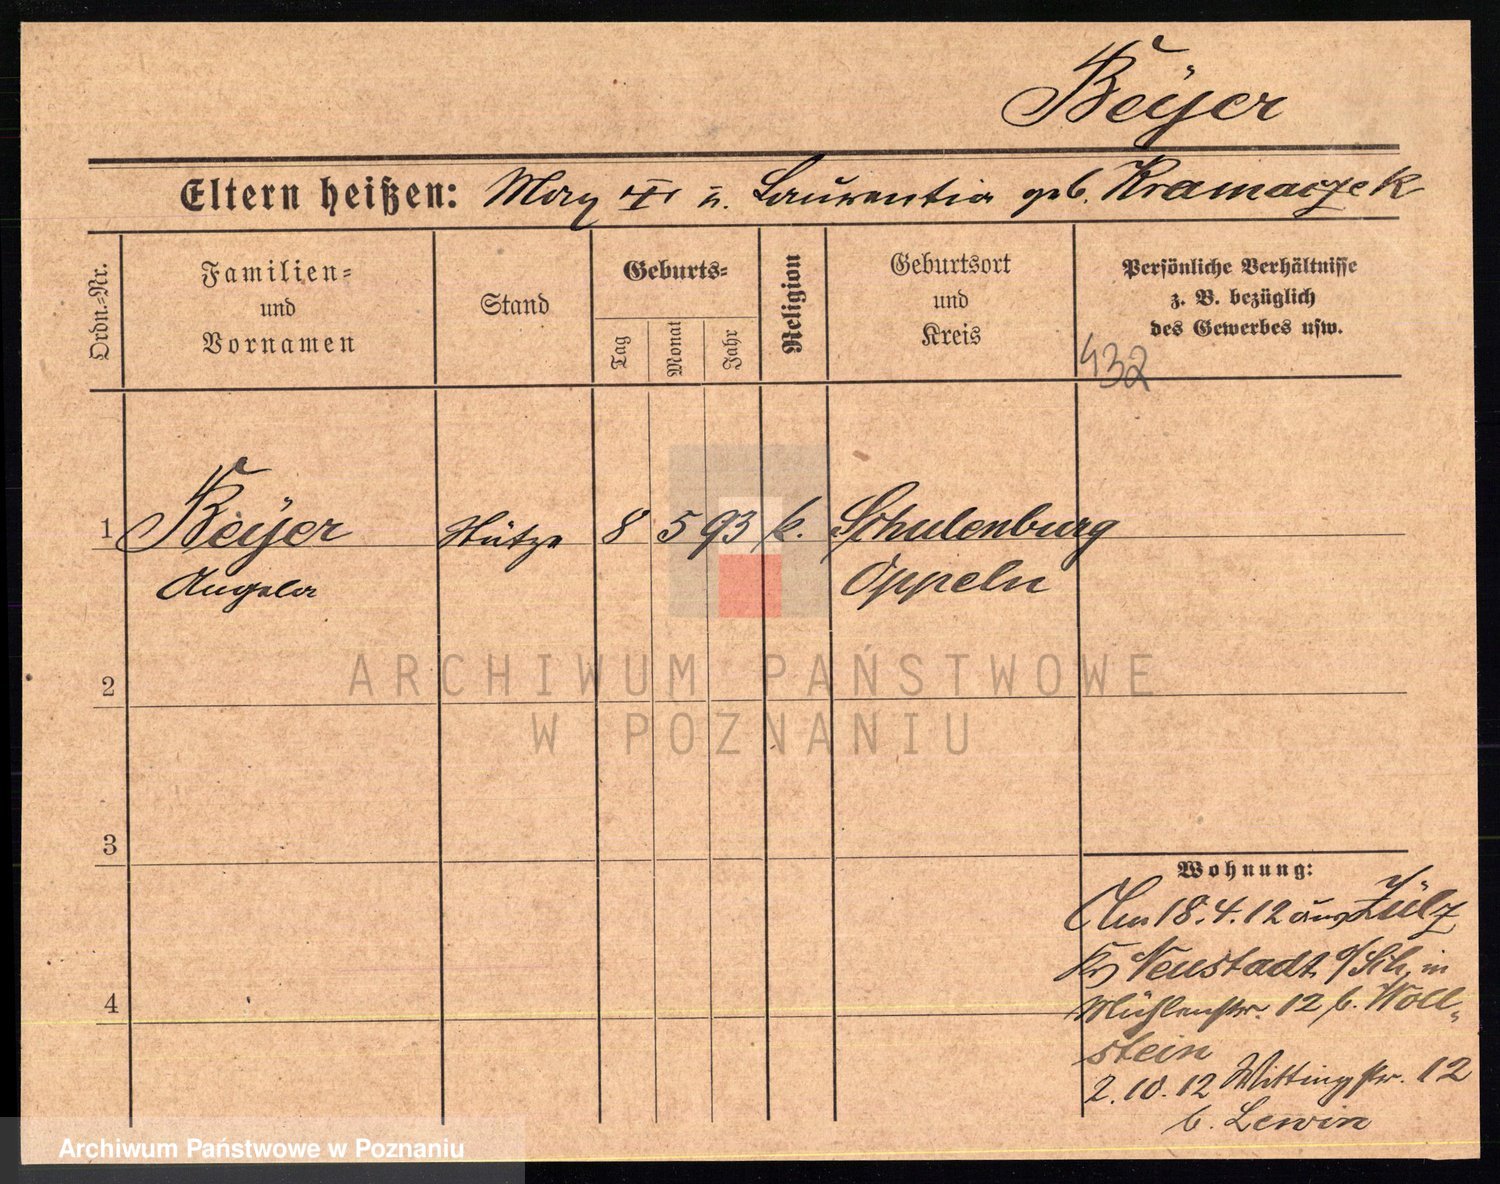 Beÿer
Eltern heißen: Max u. Laurentia geb. Kramaczek
Ordn.=Nr.
Familien=
und
Vornamen
Stand
Geburts=
Tag
Monat
Jahr
Religion
Geburtsort
und
Kreis
Persönliche Verhältnisse
z. B. bezüglich
des Gewerbes usw.
432
1 Beÿer Stütze 8 5 93 k. Schulenburg
Angela Oppeln
2
3
4
Wohnung:
Am 18.4.12 aus Zülz
Kr Neustadt o/Sch. in
Mühlenstr. 12 b. Woll-
stein
2.10.12 Wittingstr. 12
b. Lewin
ARCHIWUM PAŃSTWOWE
W POZNANIU
Archiwum Państwowe w Poznaniu